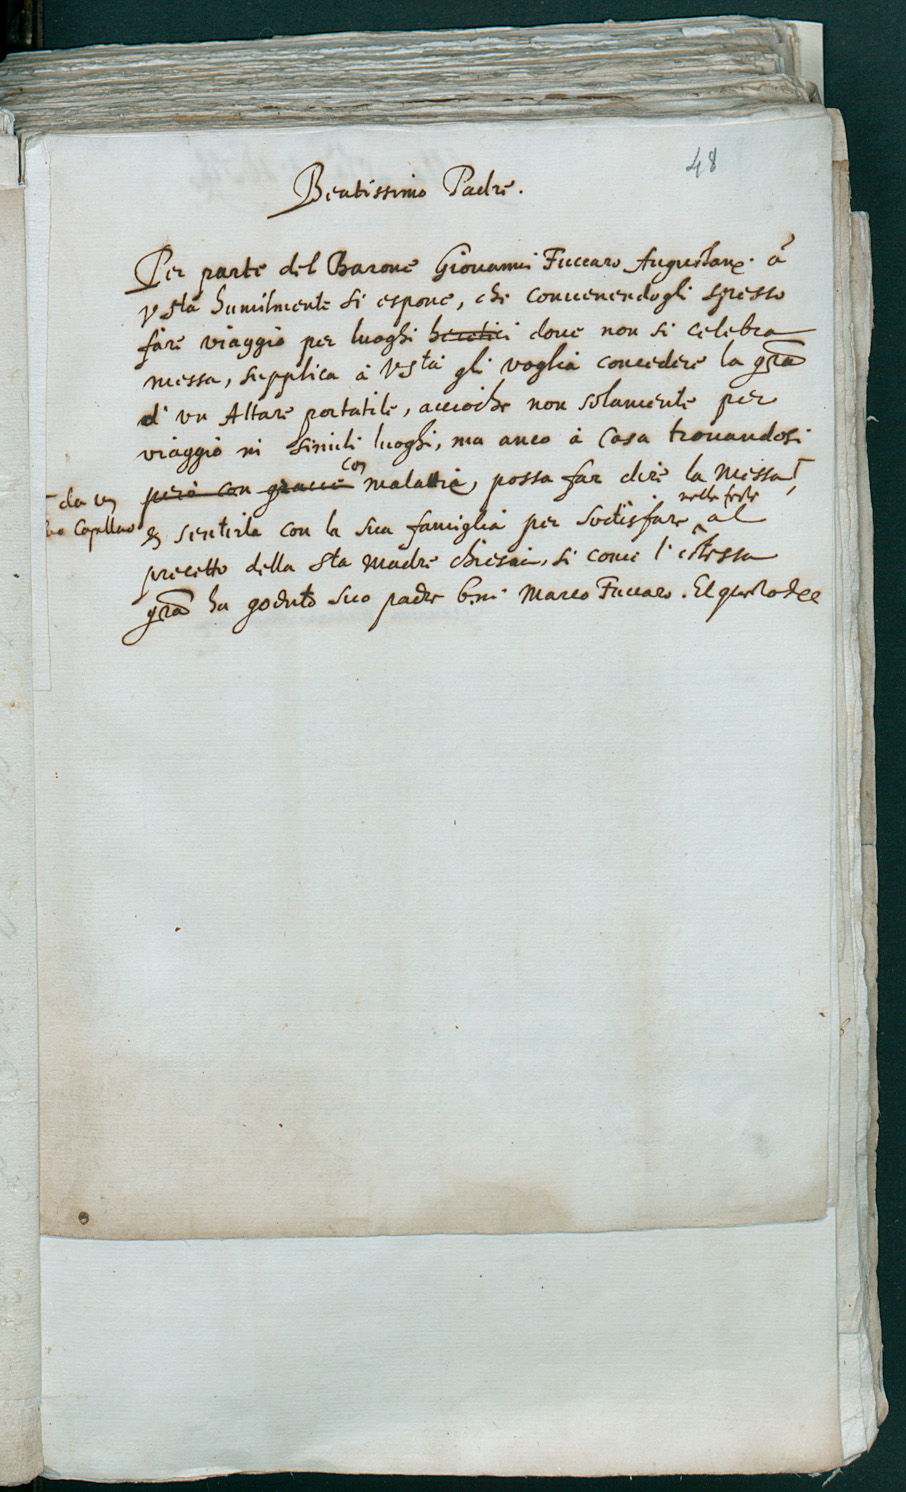 48
Beatissimo Padre.
Per parte del Barone Giovanni Fuccaro Augustano. à
V Sta humilmente si espone, che convenendogli spesso
fare viaggio per luoghi heretici dove non si celebra
messa, supplica à V Sta gli voglia concedere la gra
d' un Altare portatile, accioche non solamente per
viaggio ni simili luoghi, ma anco à casa trovandosi
però con grave con malatia, possa far dire la Messa
da un
suo Capellano
& sentirla con la sua famiglia per sodisfare nelle feste al
precetto della Sta Madre chiesa, si come l' istessa
gra ha goduto suo padre Marco Fuccaro. Et questo